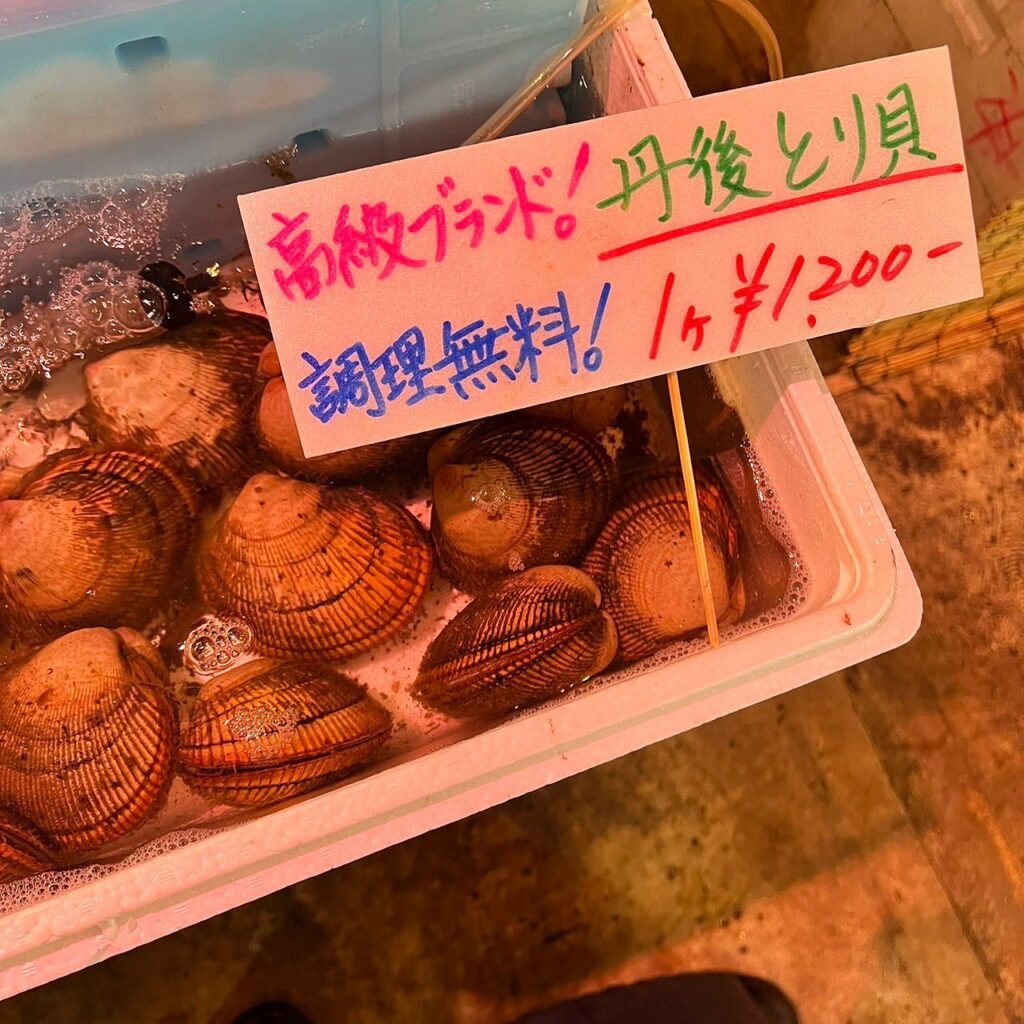 高級ブランド! 丹後とり貝
調理無料! 1ヶ¥1,200-